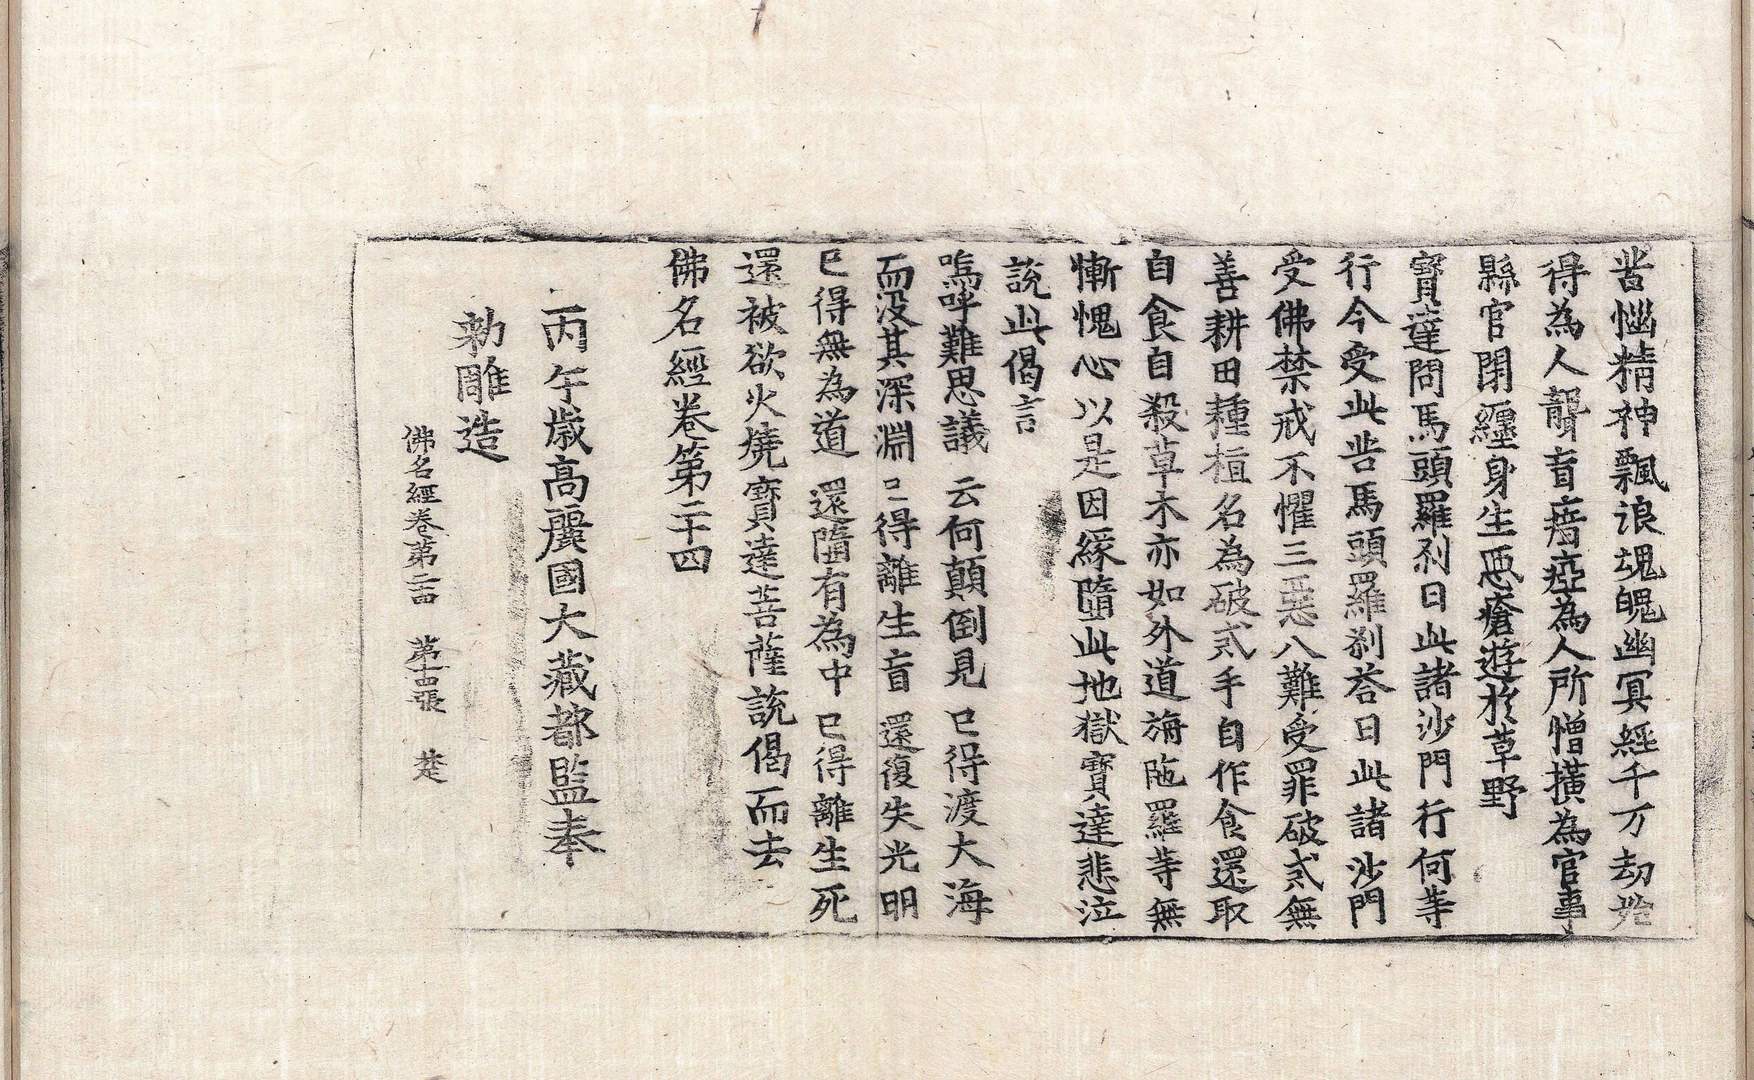 苦惱精神飄浪魂魄幽冥經千万劫始
得為人聾盲瘖瘂為人所憎撗為官事
縣官閉纏身生惡瘡遊於草野
寳達問馬頭羅刹曰此諸沙門行何等
行今受此苦馬頭羅刹荅曰此諸沙門
受佛禁戒不懼三惡八難受罪破戒無
善耕田種植名為破戒手自作食還取
自食自殺草木亦如外道旃陁羅等無
慚愧心以是因緣墮此地獄寳達悲泣
說此偈言
嗚呼難思議 云何顛倒見 已得渡大海
而没其深淵 已得離生盲 還復失光明
已得無為道 還墮有為中 已得離生死
還被欲火燒寳達菩薩說偈而去
佛名經卷第二十四
丙午歳高麗國大藏都監奉
勑雕造
佛名經卷第二十四 第十五張 楚